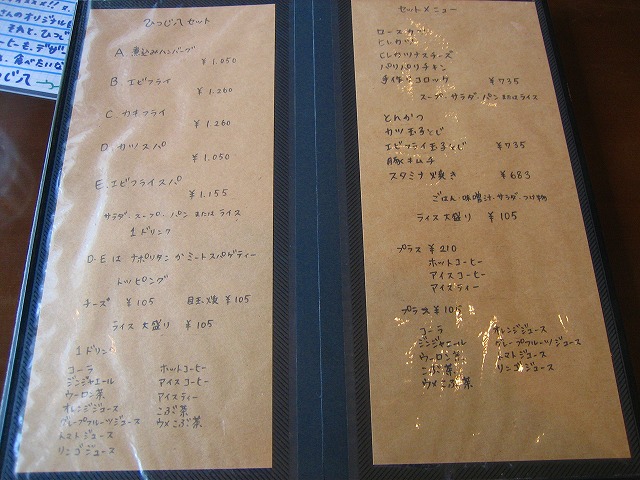 さんのオリジナルも
それと、ひつじ
ヒーも、デザ
ひつじ八セット
A 煮込みハンバーグ
¥1.050
B. エビフライ
¥1.260
C カキフライ
¥1.260
D. カツスパ
¥1.050
E. エビフライスパ
¥1.155
サラダ・スープ・パン または ライス
1ドリンク
D・E は ナポリタン か ミートスパゲティー
トッピング
チーズ ¥105 目玉焼 ¥105
ライス大盛り ¥105
1ドリンク
コーラ ホットコーヒー
ジンジャエール アイスコーヒー
ウーロン茶 アイスティー
オレンジジュース こぶ茶
グレープフルーツジュース ウメこぶ茶
トマトジュース
リンゴジュース
セットメニュー
ロースカツ
ヒレカツ
ヒレカツチーズ
パリパリチキン
手作りコロッケ ¥735
スープ・サラダ・パン または ライス
とんかつ
カツ玉子とじ
エビフライ玉子とじ ¥735
豚キムチ
スタミナ焼き ¥683
ごはん・味噌汁・サラダ・つけ物
ライス大盛り ¥105
プラス ¥210
ホットコーヒー
アイスコーヒー
アイスティー
プラス ¥105
コーラ オレンジジュース
ジンジャエール グレープフルーツジュース
ウーロン茶 トマトジュース
こぶ茶 リンゴジュース
ウメこぶ茶